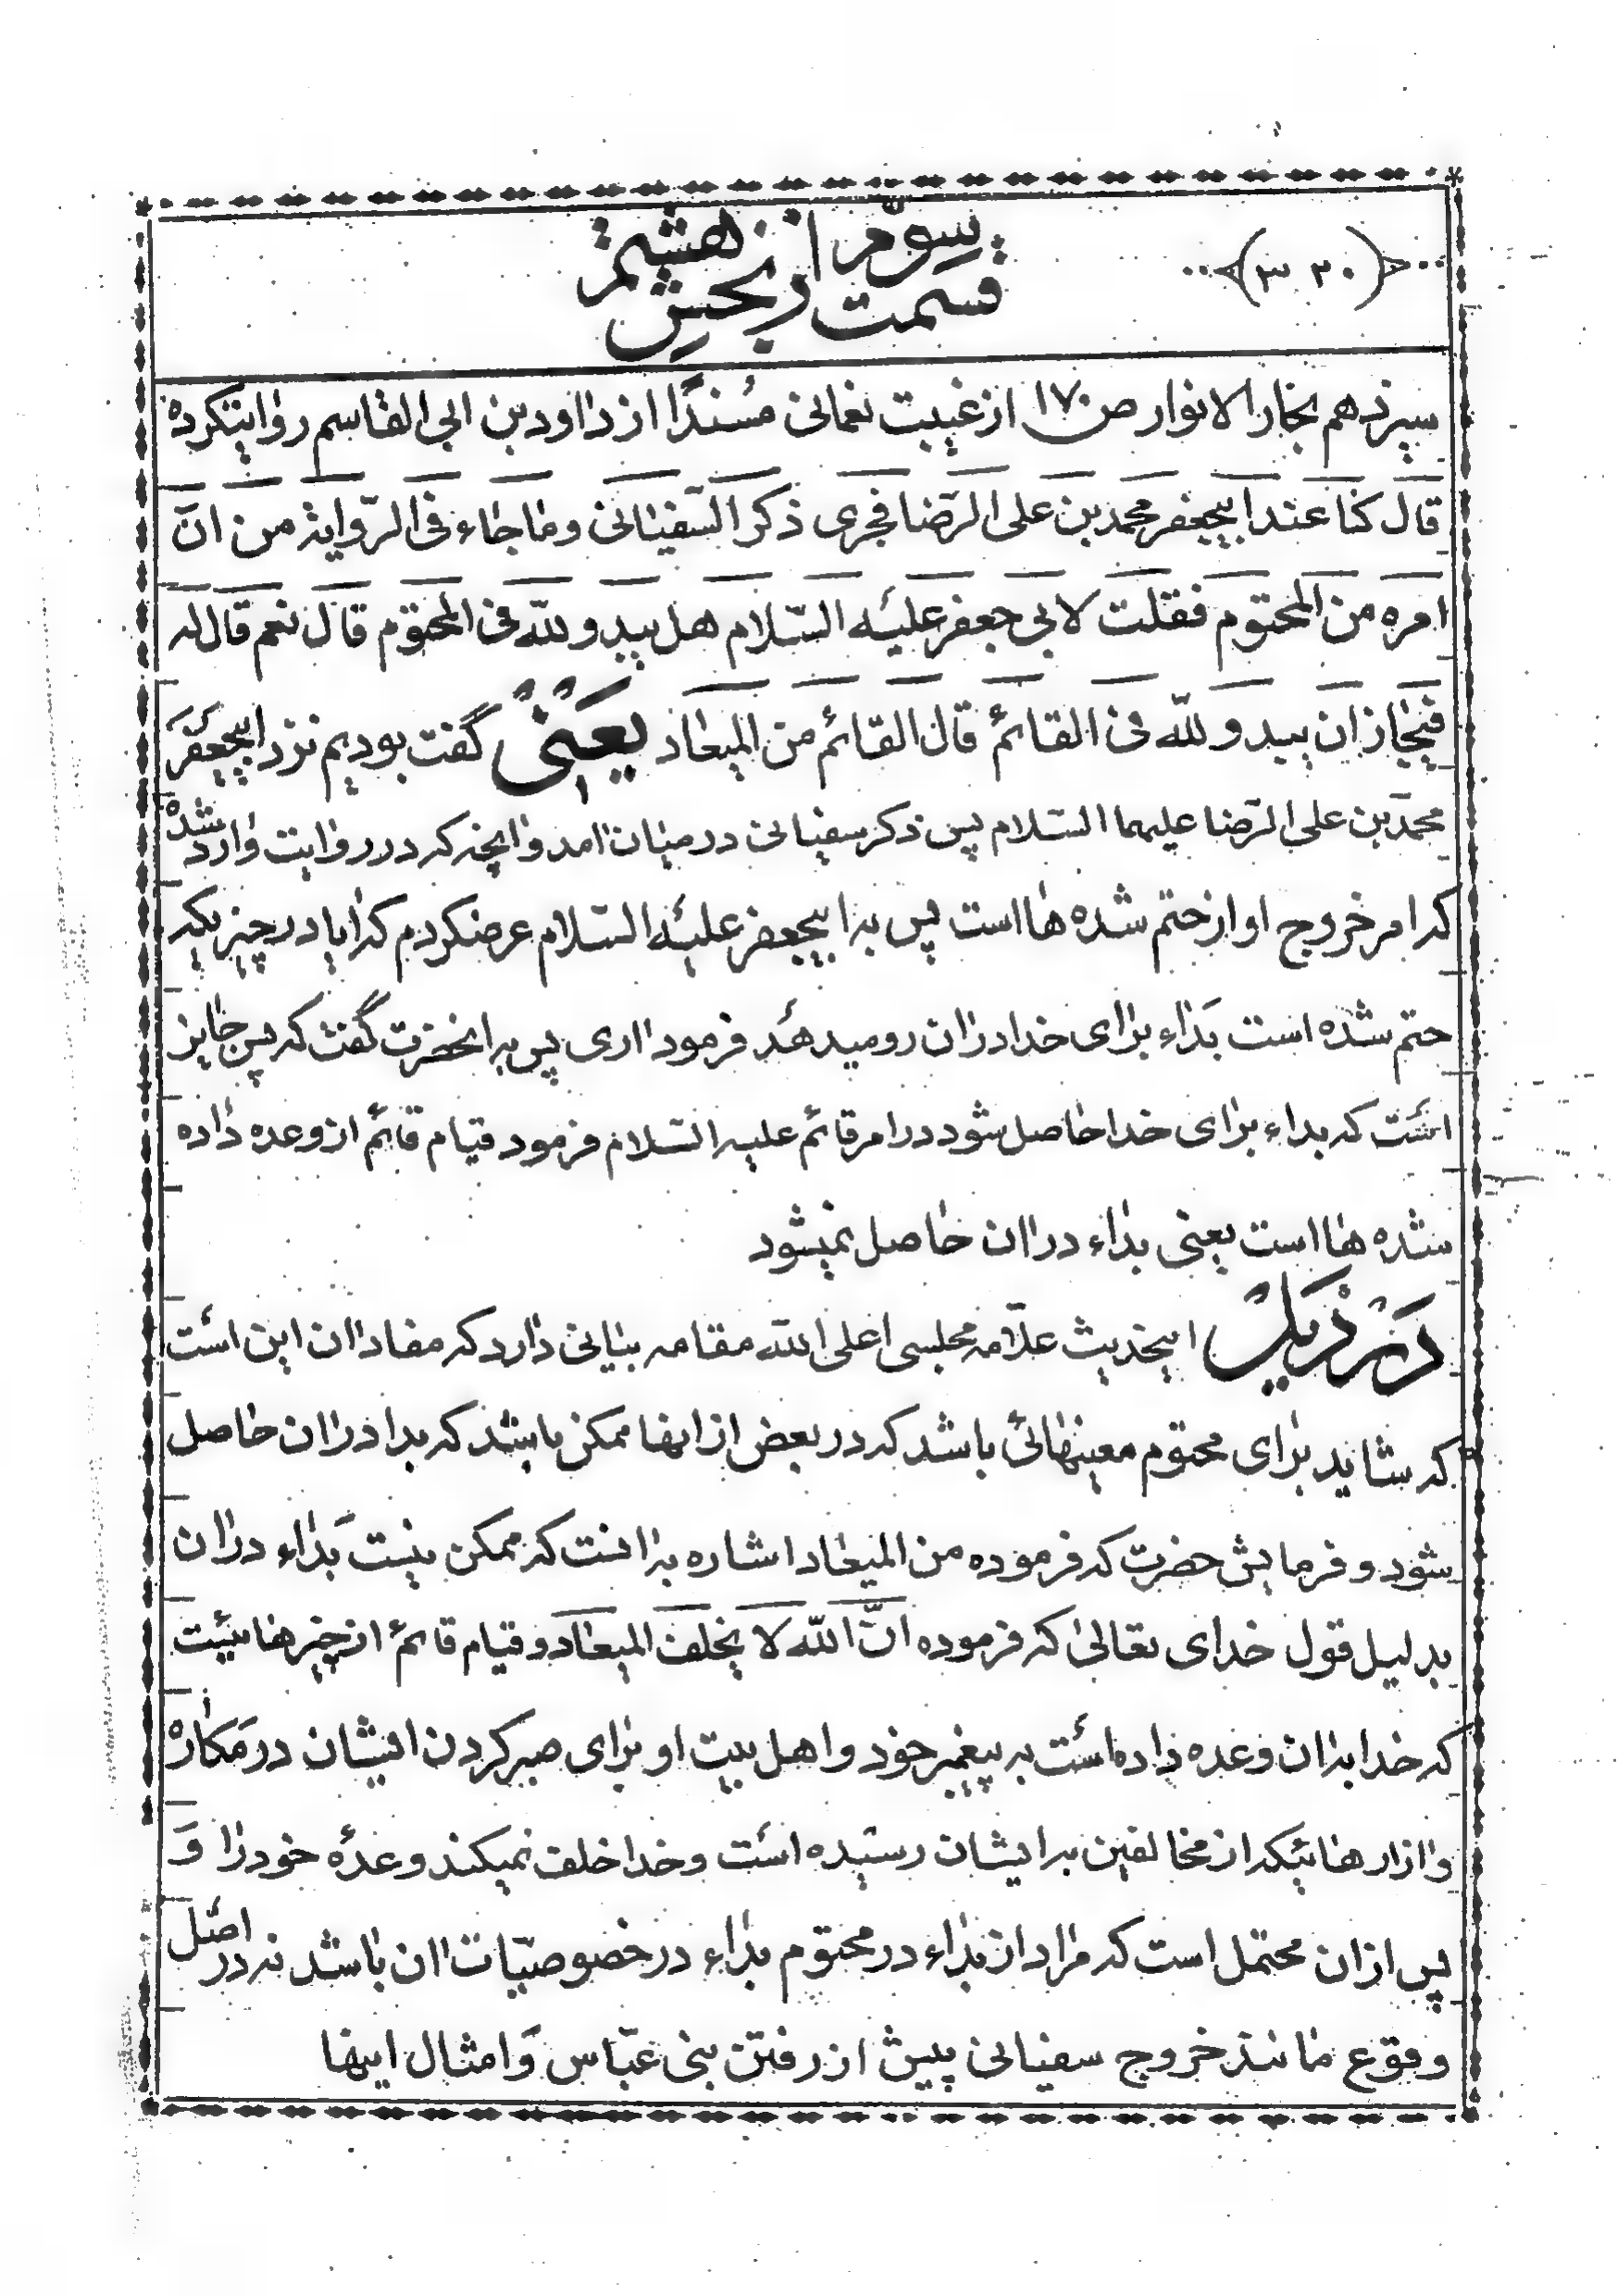 (۳۳۰)
قسمت سوّم از بخش هشتم
سیزدهم بحار الانوار ص ۱۷۰ از غیبت نعمانی مسندًا از داود بن ابی القاسم روایتکرده
قال کنا عند ابیجعفر محمد بن علی الرّضا فجری ذکر السّفیانی و ما جاء فی الرّوایة من انّ
امره من المحتوم فقلت لابی جعفر علیه السّلام هل یبدو للّه فی المحتوم قال نعم قال له
فیجاز ان یبدو للّه فی القائم قال القائم من المیعاد یعنی گفت بودیم نزد ابیجعفر
محمد بن علی الرّضا علیهما السّلام پس ذکر سفیانی در میان امد و انچه که در روایت وارد شده
که امر خروج او از ختم شده ها است پس به ابیجعفر علیه السّلام عرضکردم که ایا در چیزیکه
حتم شده است بداء برای خدا در ان رومیدهد فرمود اری پس به انحضرت گفت که پس جایز
است که بداء برای خدا حاصل شود در امر قائم علیه السّلام فرمود قیام قائم از وعده داده
شده ها است یعنی بداء در ان حاصل نمیشود
در ذیل اینحدیث علّامه مجلسی اعلی اللّه مقامه بیانی دارد که مفاد ان این است
که شاید برای محتوم معینهائی باشد که در بعض از انها ممکن باشد که بدا در ان حاصل
شود و فرمایش حضرت که فرموده من المیعاد اشاره به انست که ممکن نیست بداء در ان
بدلیل قول خدای تعالی که فرموده انّ اللّه لا یخلف المیعاد و قیام قائم از چیزهائیست
که خدا به ان وعده داده است به پیغمبر خود و اهل بیت او برای صبر کردن ایشان در مکاره
و ازارهائیکه از مخالفین به ایشان رسیده است و خدا خلف نمیکند وعدهٔ خود را و
پس از ان محتمل است که مراد از بداء در محتوم بداء در خصوصیّات ان باشد نه در اصل
وقوع مانند خروج سفیانی پیش از رفتن بنی عبّاس و امثال اینها